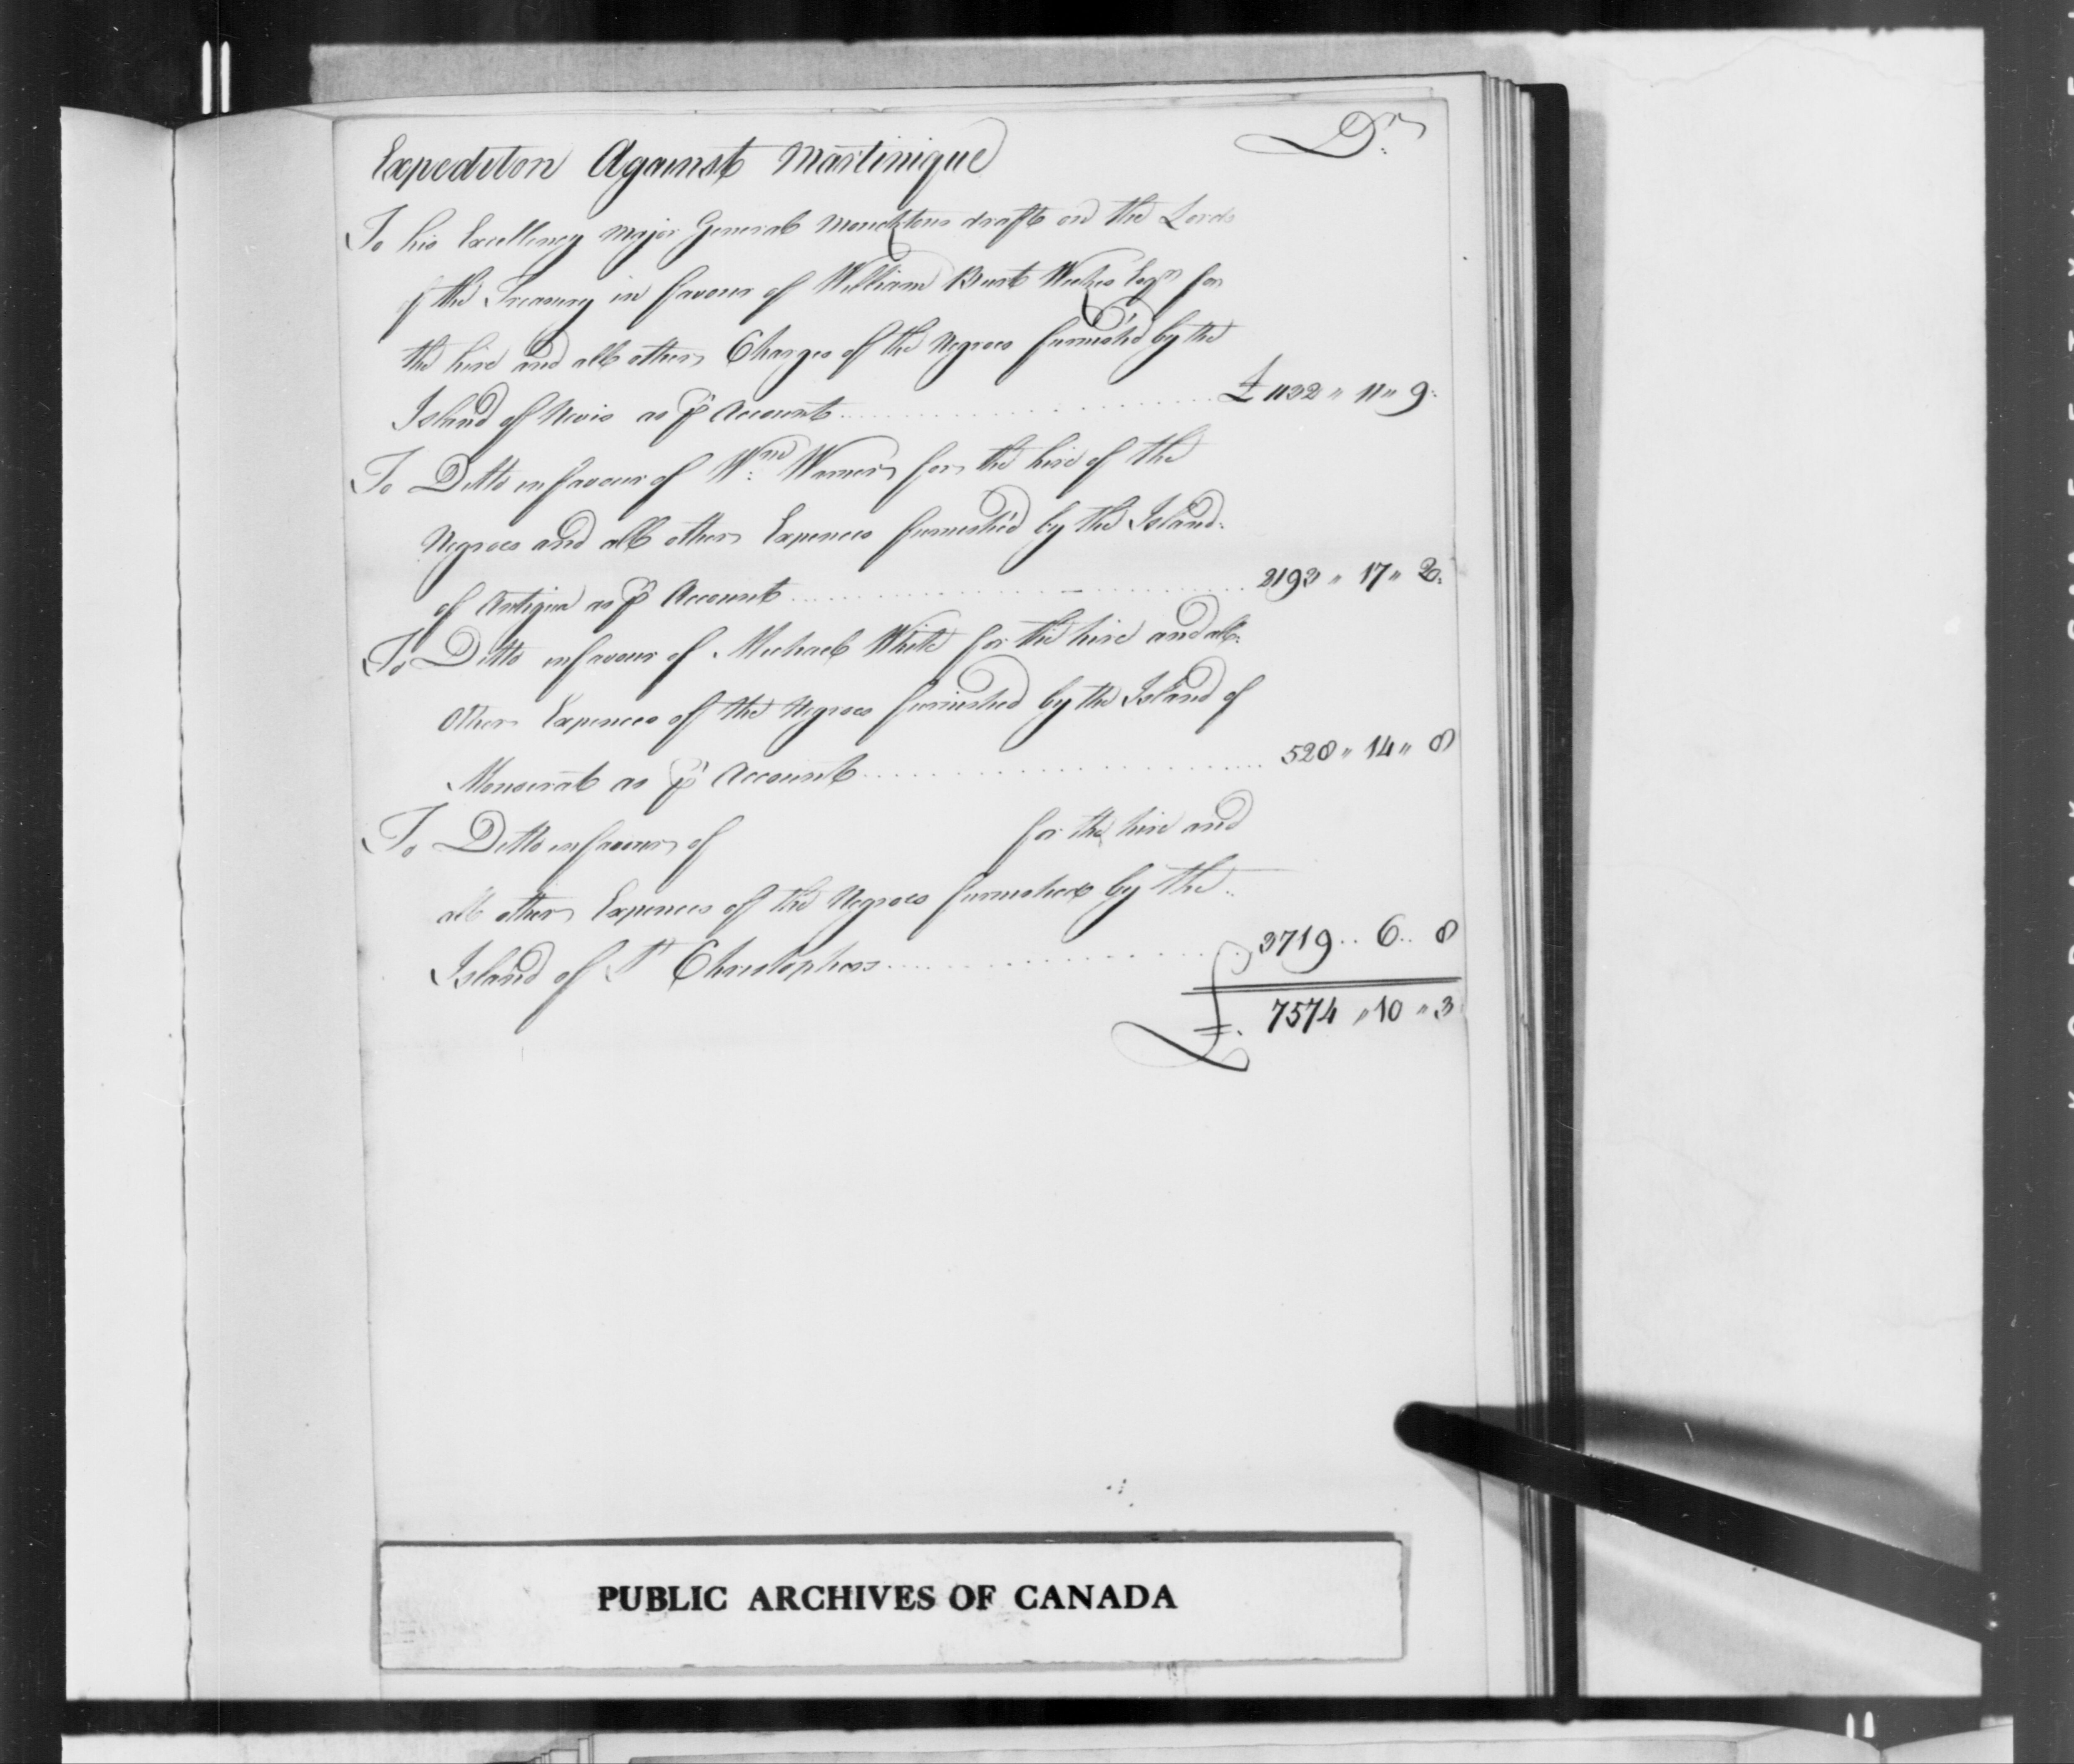 Expediton Against Martinique Dr.
To his Excellency Major General Moncktons draft on the Lords
of the Treasury in favour of William Burt Weekes Esqr. for
the hire and all other Charges of the Negroes furnish'd by the
Island of Nevis as ℔ Account £ 1132 " 11 " 9
To Ditto in favour of Wm. Warner for the hire of the
Negroes and all other Expences furnish'd by the Island
of Antigua as ℔ Account 2193 " 17 " 2
To Ditto in favour of Michael White for the hire and all
other Expences of the Negroes furnished by the Island of
Monserrat as ℔ Account 528 " 14 " 8
To Ditto in favour of for the hire and
all other Expences of the Negroes furnished by the
Island of St Christophers 3719 .. 6 .. 8
£ 7574 " 10 " 3
PUBLIC ARCHIVES OF CANADA